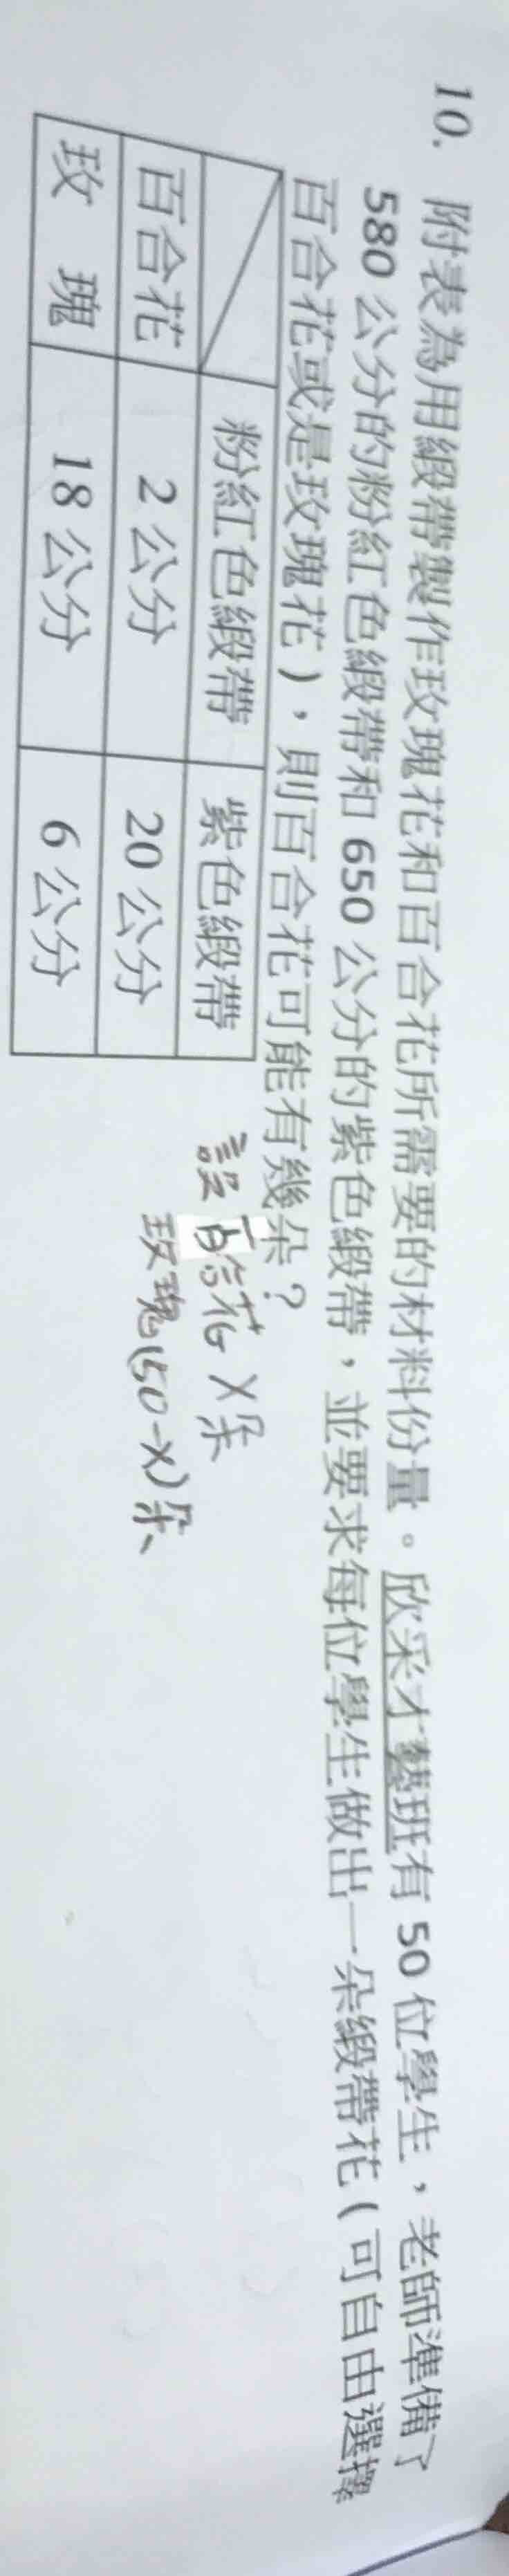 10. 附表為用緞帶製作玫瑰花和百合花所需要的材料份量。欣采才藝班有 50 位學生,老師準備了
580 公分的粉紅色緞帶和 650 公分的紫色緞帶,並要求每位學生做出一朵緞帶花(可自由選擇
百合花或是玫瑰花),則百合花可能有幾朵?
粉紅色緞帶 紫色緞帶
百合花 2 公分 20 公分
玫瑰 18 公分 6 公分
設百合花 x 朵
玫瑰(50-x)朵